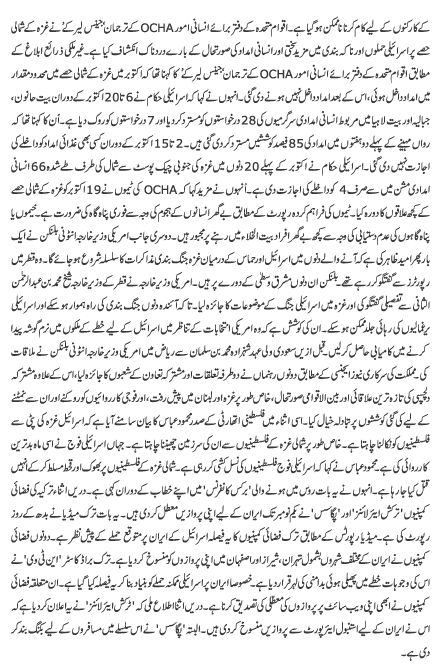 کے کارکنوں کے لیے کام کرنا ناممکن ہوگیا ہے۔ اقوام متحدہ کے دفتر برائے انسانی امور OCHA کے ترجمان جینس لیر کے نے غزہ کے شمالی
حصے پر اسرائیلی حملوں اور ناکہ بندی میں مزید سختی اور انسانی امداد کی صورتحال کے بارے دردناک انکشاف کیا ہے۔ غیر ملکی ذرائع ابلاغ کے
مطابق اقوام متحدہ کے دفتر برائے انسانی امور OCHA کے ترجمان جینس لیر کے نے کہنا تھا کہ اکتوبر میں غزہ کے شمالی حصے میں محدود مقدار
میں امداد داخل ہوئی، اس کے بعد امداد داخل نہیں ہونے دی گئی۔ انہوں نے کہا کہ اسرائیلی حکام نے 6 تا 20 اکتوبر کے دوران بیت حانون،
جبالیہ اور بیت لاہیا میں مربوط انسانی امدادی سرگرمیوں کی 28 درخواستوں کو مسترد کر دیا اور 7 درخواستوں کو روک دیا ہے۔ اُن کا کہنا تھا کہ
رواں مہینے کے پہلے دو ہفتوں میں امداد کی 85 فیصد کوششیں مسترد کر دی گئیں ہیں۔ 2 تا 15 اکتوبر کے دوران کسی بھی غذائی امداد کو داخلے کی
اجازت نہیں دی گئی۔ اسرائیلی حکام نے اکتوبر کے پہلے 20 دنوں میں غزہ کی جنوبی چیک پوسٹ سے شمال کی طرف طے شدہ 66 انسانی
امدادی مشن میں سے صرف 4 کو داخلے کی اجازت دی ہے۔ اُنہوں نے مزید کہا کہ OCHA کی ٹیموں نے 19 اکتوبر کو غزہ کے شمالی حصے
کے کچھ علاقوں کا دورہ کیا۔ ٹیموں کی فراہم کردہ رپورٹ کے مطابق بے گھر انسانوں کے ہجوم کی وجہ سے فوری پناہ گاہ کی ضرورت ہے۔ خیموں یا
پناہ گاہوں کی عدم دستیابی کی وجہ سے کچھ بے گھر افراد بیت الخلاء میں رہنے پر مجبور ہیں۔ دوسری جانب امریکی وزیر خارجہ انٹونی بلنکن نے ایک
بار پھر امید ظاہر کی ہے کہ آنے والے دنوں میں اسرائیل اور حماس کے درمیان غزہ جنگ بندی مذاکرات کا سلسلہ شروع ہو جائے گا۔ وہ قطر میں
رپورٹرز سے گفتگو کر رہے تھے۔ بلنکن ان دنوں مشرق وسطیٰ کے دورے پر ہیں۔ امریکی وزیر خارجہ نے قطر کے وزیر خارجہ شیخ محمد بن عبدالرحمٰن
الثانی سے تفصیلی گفتگو کی اور غزہ میں اسرائیلی جنگ کے موضوعات کا جائزہ لیا۔ تاکہ آئندہ دنوں جنگ بندی کی راہ ہموار ہو سکے اور اسرائیلی
یرغمالیوں کی رہائی جلد ممکن ہو سکے۔ ان کی کوشش ہے کہ وہ امریکی انتخابات کے تناظر میں اسرائیل کے لیے خطے کے ملکوں میں نرم گوشہ پیدا
کرنے میں کامیابی حاصل کر لیں۔ قبل ازیں سعودی ولی عہد شہزادہ محمد بن سلمان سے ریاض میں امریکی وزیر خارجہ انٹونی بلنکن نے ملاقات
کی۔ مملکت کی سرکاری نیوز ایجنسی کے مطابق دونوں رہنماں نے دو طرفہ تعلقات اور مشترکہ تعاون کے شعبوں کا جائزہ لیا، اس کے علاوہ مشترکہ
دلچسپی کی تازہ ترین علاقائی اور بین الاقوامی صورتحال، خاص طور پر غزہ اور لبنان میں پیش رفت، اور فوجی کارروائیوں کو روکنے اور ان سے نمٹنے
کے لیے کی گئی کوششوں پر تبادلہ خیال کیا۔ اسی اثناء میں فلسطینی اتھارٹی کے صدر محمود عباس کا بیان سامنے آیا ہے کہ اسرائیل غزہ کی پٹی سے
فلسطینیوں کو نکالنا چاہتا ہے۔ خاص طور پر شمالی غزہ کے فلسطینیوں سے ان کی سرزمین چھیننا چاہتا ہے۔ جہاں اسرائیلی فوج نے اسی ماہ بدترین
کارروائی کی ہے۔ محمود عباس نے کہا کہ اسرائیلی فوج فلسطینیوں کی نسل کشی کر رہی ہے۔ شمالی غزہ کے فلسطینیوں پر بھوک اور قحط مسلط کر کے انہیں
قتل کیا جا رہا ہے۔ انہوں نے یہ بات روس میں ہونے والی 'برکس کانفرنس' میں اپنے خطاب کے دوران کہی ہے۔ دریں اثناء ترکیہ کی فضائی
کمپنیوں 'ترکش ایئر لائنز' اور 'پیگاسس' نے یکم نومبر تک ایران کے لیے اپنی پروازیں معطل کر دی ہیں۔ یہ بات ترک میڈیا نے بدھ کے روز
رپورٹ کی ہے۔ میڈیا رپورٹس کے مطابق ترک فضائی کمپنیوں کا یہ فیصلہ اسرائیل کے ایران پر متوقع حملے کے پیش نظر ہے۔ دونوں فضائی
کمپنیوں نے ایران کے مختلف شہروں بشمول تہران، شیراز اور اصفہان میں اپنی پروازوں کو منسوخ کر دیا ہے۔ ترک براڈ کاسٹر 'این ٹی وی' نے
اس کی وجوہات خطے میں پھیلی ہوئی بدامنی کی لہر قرار دیا ہے۔ خصوصا ایران پر اسرائیلی ممکنہ حملے کو بنیاد بنا کر یہ فیصلہ کیا گیا ہے۔ ان متعلقہ فضائی
کمپنیوں نے ابھی اپنی ویب سائٹ پر پروازوں کی معطلی کی تصدیق کرنا ہے۔ دریں اثنا اطلاع ملی کہ 'ٹرکش ایئر لائنز' نے یہ اعلان کر دیا ہے کہ
اس نے ایران کے لیے استنبول ایئرپورٹ سے پروازیں منسوخ کر دی ہیں۔ البتہ 'پیگاسس' نے اس سلسلے میں مسافروں کے لیے بکنگ بند کر
دی ہے۔